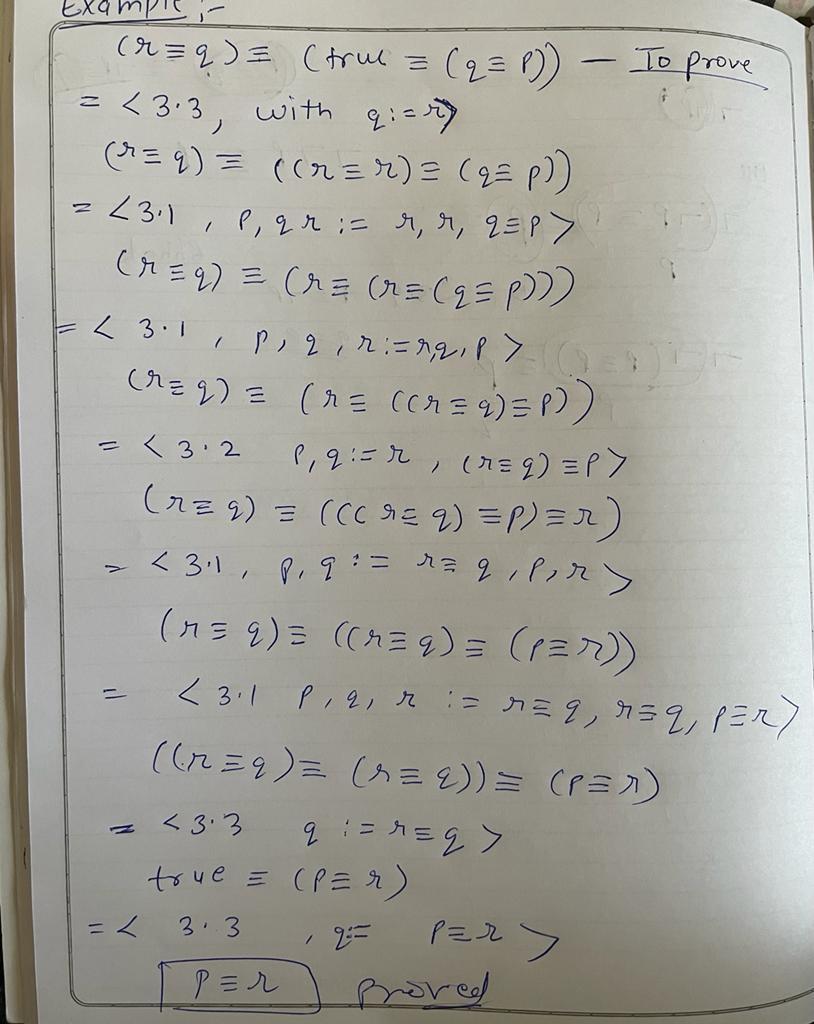 Example :-
(r ≡ q) ≡ (true ≡ (q ≡ p)) — To prove
= < 3.3, with q := r>
(r ≡ q) ≡ ((r ≡ r) ≡ (q ≡ p))
= <3.1 , p, q r := r, r, q≡p >
(r ≡ q) ≡ (r ≡ (r ≡ (q ≡ p)))
= < 3.1 , p, q, r := r,q, p >
(r ≡ q) ≡ (r ≡ ((r ≡ q) ≡ p))
= < 3.2 p, q := r , (r≡q) ≡p >
(r ≡ q) ≡ (((r ≡ q) ≡p) ≡ r)
= < 3.1, p, q := r≡ q , p, r >
(r ≡ q) ≡ ((r ≡ q) ≡ (p ≡ r))
= < 3.1 p, q, r := r≡q, r≡q, p≡r >
((r ≡ q) ≡ (r ≡ q)) ≡ (p ≡ r)
= < 3.3 q := r ≡ q >
true ≡ (p ≡ r)
= < 3.3 , q:= p≡r >
p ≡ r proved